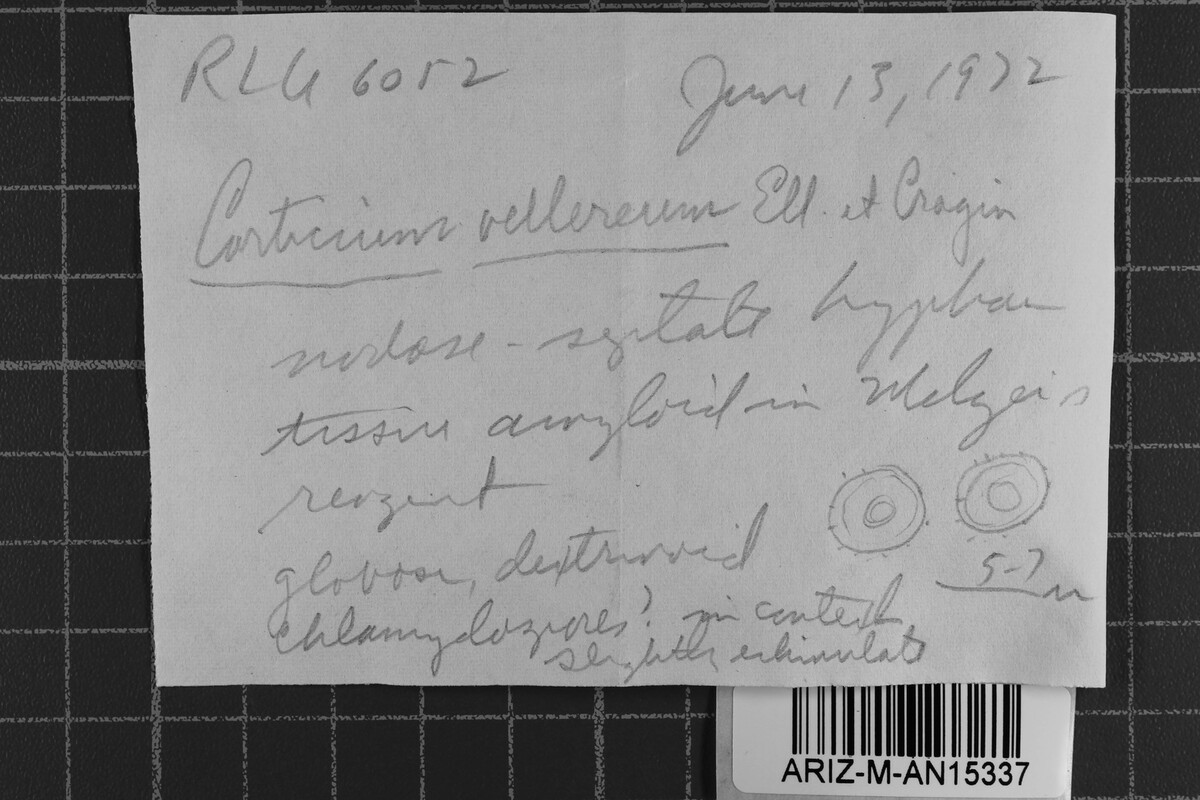 RLG 6052 June 13, 1972
Corticium vellereum Ell. et Cragin
nodose-septate hyphae
tissue amyloid in Melzer's
reagent
globose, dextrinoid
5-7 u
chlamydospores? in context
slightly echinulate
ARIZ-M-AN15337